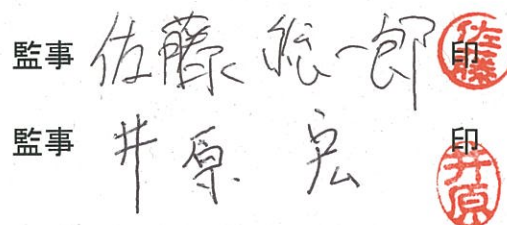 監事 佐藤 総一郎 印 佐藤
監事 井原 宏 印 井原